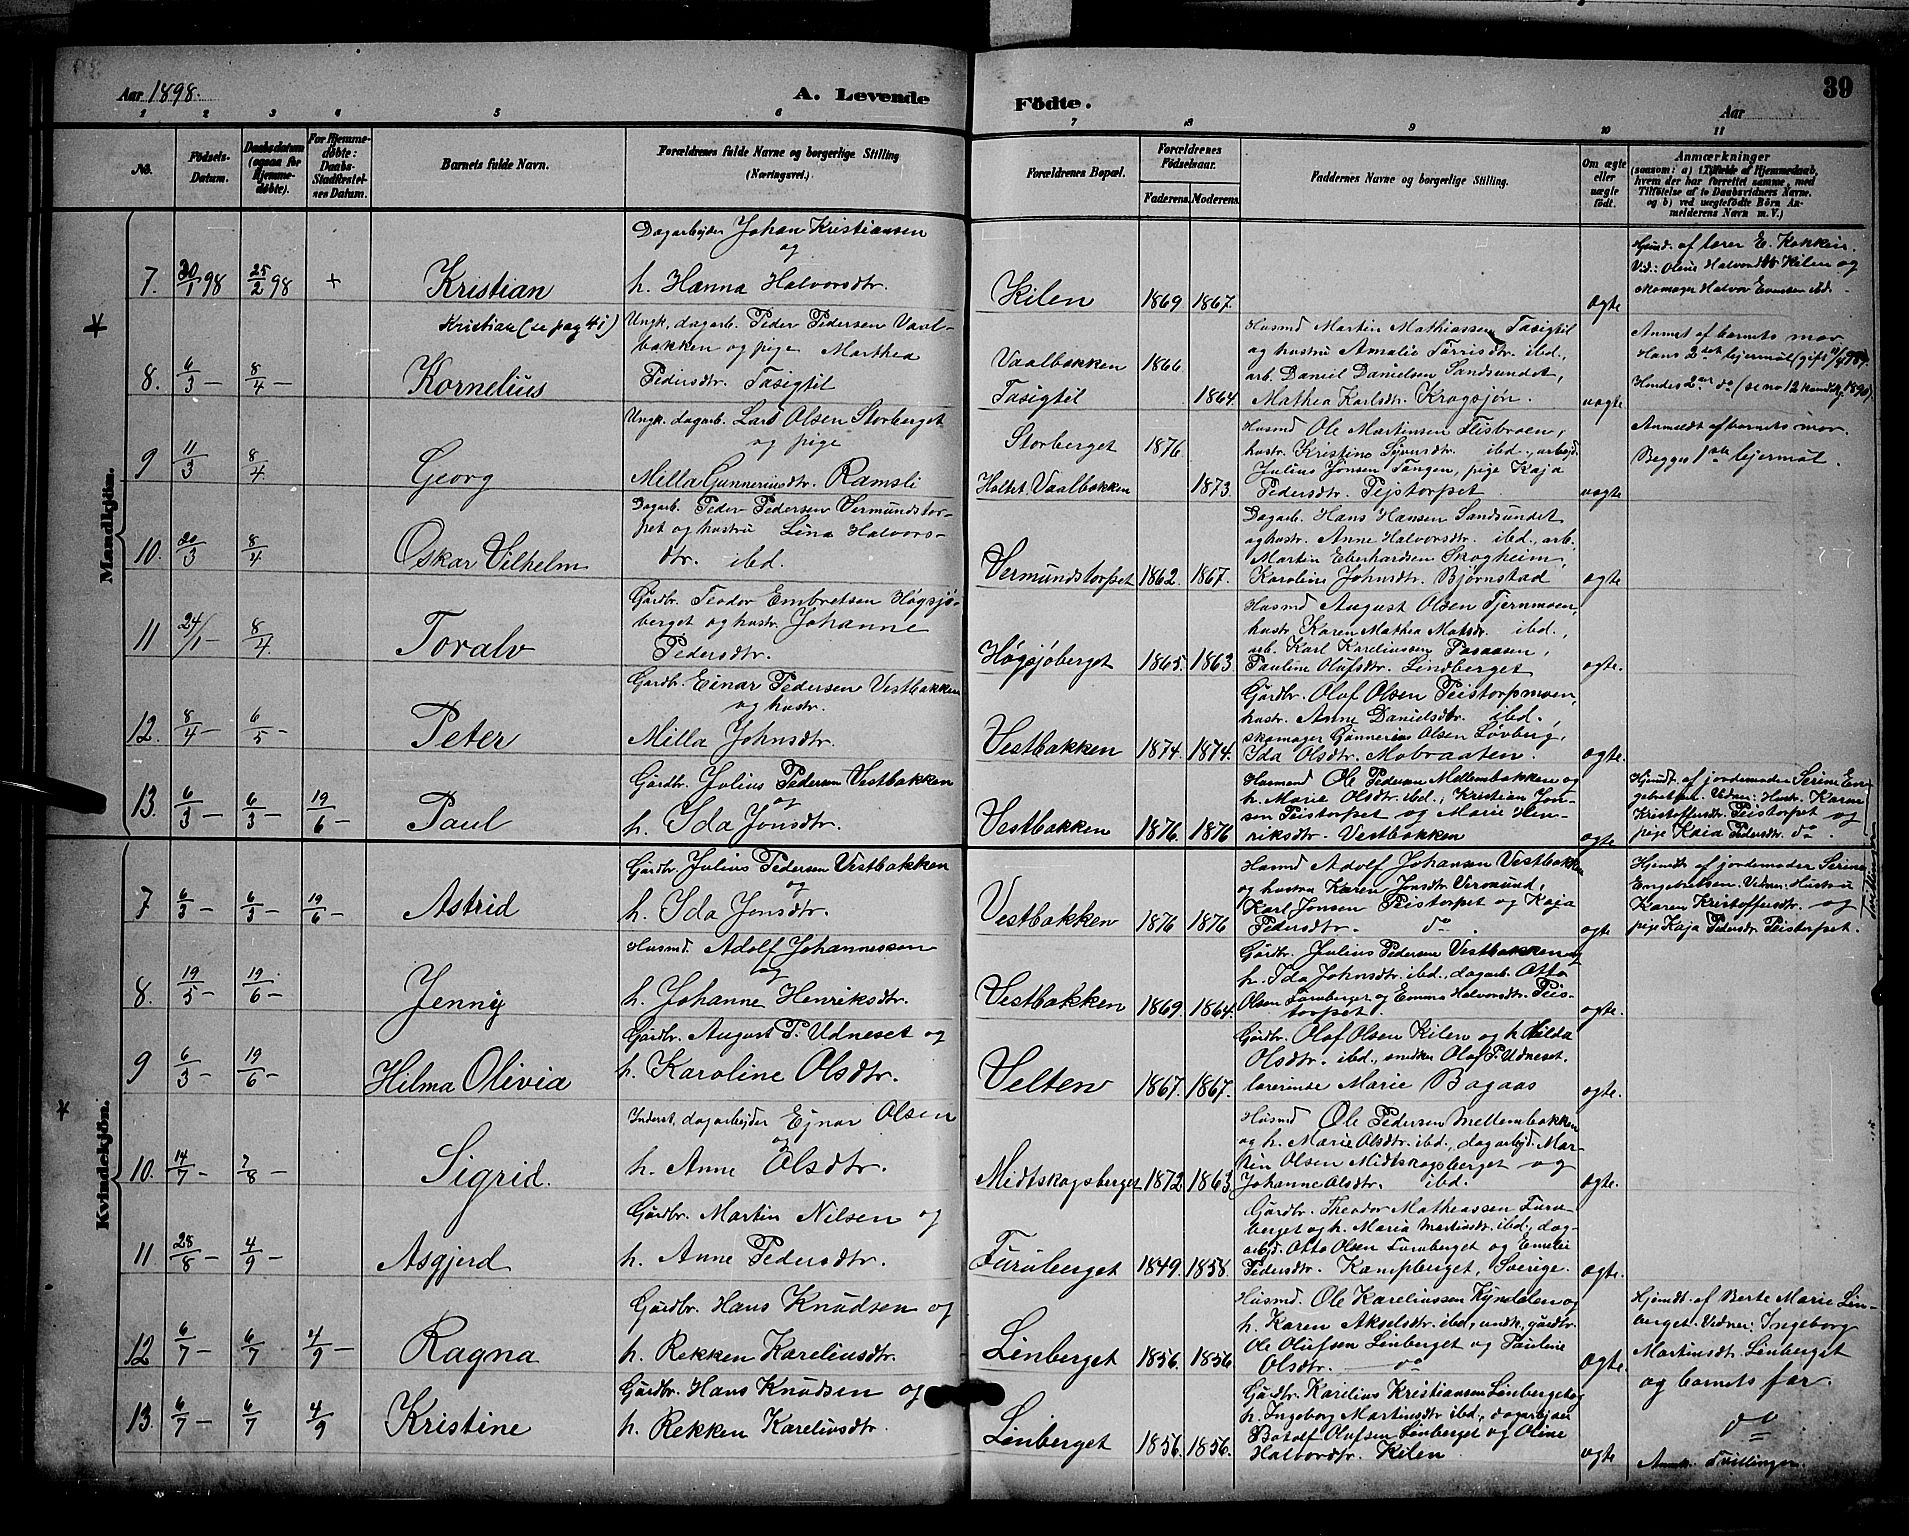 Aar 1898.
A. Levende
Födte.
Aar
39
1 2 3 4 5 6 7 8 9 10 11
No.
Födsels-Datum.
Daabsdatum (ogsaa for Hjemmedøbte).
For Hjemmedøbte: Daabs-Stadfæstelsens Datum.
Barnets fulde Navn.
Forældrenes fulde Navne og borgerlige Stilling (Næringsvei.)
Forældrenes Bopæl.
Forældrenes Födselsaar.
Faderens.
Moderens.
Faddernes Navne og borgerlige Stilling.
Om ægte eller uægte födt.
Anmærkninger
Mandkjön.
7. 30/1 98 25/2 98 + Kristian
Dagarbejder Johan Kristiansen
og
h. Hanna Halvorsdtr.
Kilen 1869 1867.
ægte
Hjmd. af lærer E. Kokkin.
Vid.: Oline Halvordtr Kilen og
skomager Halvor Evensen ibd.
Kristian (se pag 41)
8. 6/3 — 8/4 — Kornelius
Ungk. dagarb. Peder Pedersen Vaal-
bakken og pige Marthea
Pedersdtr. Tasigtil
Vaalbakken 1866
Tasigtil 1864.
Husmd Martin Mathiassen Tasigtil
og hustru Amalie Tørrisdtr. ibd.,
arb. Daniel Danielsen Sandsundet,
Mathea Karlsdtr. Krogsjön.
uægte
Anmet af barnets mor
9 11/3 8/4 Georg
Ungk. dagarb. Lars Olsen Storberget
og pige
Milla Gunneriusdtr. Ramsli
Storberget 1876
Holtet Vaalbakken 1873.
Husmd Ole Martinsen Flisbroen,
hustr. Kristine Syversdtr. ibd., arbejd.
Julius Jonsen Tangen, pige Kaja
Pedersdtr. Pejstorpet
uægte
Anmeldt af barnets mor.
Begges 1ste lejermål.
10. 20/3 8/4 Oskar Vilhelm
Dagarb. Peder Pedersen Vermundstor-
pet og hustru Lina Halvors-
dtr. ibd.
Vermundstorpet 1862. 1867.
Dagarb. Hans Hansen Sandsundet
og hustr. Anne Halvorsdtr. ibd., arb.
Martin Eberhardsen Skogheim,
Karoline Johnsdtr. Bjørnstad
ægte
11 24/1 — 8/4. Toralv
Gårdbr. Teodor Embretsen Høgsjø-
berget og hustr. Johanne
Pedersdtr.
Høgsjøberget 1865. 1863
Husmd August Olsen Tjernmoen,
hustr. Karen Mathea Matsdr. ibd.,
arb. Karl Kareliussen Pasaasen,
Pauline Olufsdtr. Lindberget
ægte.
12. 8/4 — 6/5 — Peter
Gårdbr. Einar Pedersen Vestbakken
og hustr.
Milla Johnsdtr.
Vestbakken 1874. 1874.
Gårdbr. Olof Olsen Peistorpmoen,
hustr. Anne Danielsdtr. ibd.,
skomager Gunnerius Olsen Løvberg,
Ida Olsdtr. Mobraaten.
ægte
13. 6/3 — 6/3 — 19/6 — Paul
Gårdbr. Julius Pedersen Vestbakken
og
h. Ida Jonsdtr.
Vestbakken 1876. 1876
Husmend Ole Pedersen Mellembakken og
h. Marie Olsdtr. ibd., Kristian Jon-
sen Peistorpet og Marie Hen-
riksdtr. Vestbakken
ægte
Hjemdt. af jordemoder Serine En-
gebretsen. Vidner: Hustr. Karen
Kristoffersdtr. Peistorpet og
pige Kaia Pedersdtr. do.
Tvillinger
Kvindekjön.
7 6/3 — 6/3 — 19/6 — Astrid
Gårdbr. Julius Pedersen Vestbakken
og
h. Ida Jonsdtr.
Vestbakken 1876 1876
Husmd Adolf Johansen Vestbakken
og hustru Karen Jonsdtr Vermund,
Karl Jonsen Peistorpet og Kaja
Pedersdtr. do.
ægte
Hjemdt. af jordemoder Serine
Engebretsen. Vidner: Hustru
Karen Kristoffersdtr. og
pige Kaja Pedersdtr. Peistorpet.
8. 19/5 — 19/6 — Jenny
Husmd. Adolf Johannessen
og
h. Johanne Henriksdtr.
Vestbakken 1869 1864.
Gårdbr. Julius Pedersen Vestbakken og
h. Ida Johnsdtr. ibd., dagarb. Otto
Olsen Furuberget og Emma Halvorsdtr. Peis-
torpet.
ægte.
9 6/3 — 19/6 — Hilma Olivia
Gårdbr. August P. Udneset og
h. Karoline Olsdtr.
Velten 1867. 1867.
Gårdbr. Olof Olsen Kilen og h. Hilda
Olsdtr. ibd., snedker Olof P. Udneset.
lærerinde Marie Bagaas
ægte.
10. 14/7 — 7/8 — Sigrid.
Inderst, dagarbejder Ejnar Olsen
og
h. Anne Olsdtr.
Midtskogsberget 1872. 1863
Husmd Ole Pedersen Mellembakken
og h. Marie Olsdtr. ibd., dagarbejd. Mar-
tin Olsen Midtskogsberget og
Johanne Olsdtr. ibd.
ægte.
11 28/8 — 4/9 — Asgjerd
Gårdbr. Martin Nilsen og
h. Anne Pedersdtr.
Furuberget 1849. 1858.
Gårdbr. Theodor Matheassen Furu-
berget og h. Maria Martinsdtr. ibd., dag-
arbejd. Otto Olsen Furuberget og Emelie
Pedersdtr. Kampberget, Sverige.
ægte.
12 6/7 — 6/7 4/9 — Ragna
Gårdbr. Hans Knudsen og
h. Rekken Kareliusdtr.
Linberget 1856. 1856
Husmd. Ole Kareliussen Kyndalen og
h. Karen Akselsdtr. ibd., ungk., gårdbr.
Ole Olufsen Linberget og Pauline
Olsdtr. — do
ægte.
Hjemdt. af Berte Marie Lin-
berget. Vidner: Ingeborg
Martinsdtr. Linberget
og barnets far
13. 6/7 — 6/7 4/9 Kristine
Gårdbr. Hans Knudsen og
h. Rekken Kareliusdtr.
Linberget 1856. 1856.
Gårdbr. Karelius Kristiansen Linberget og
h. Ingeborg Martinsdtr ibd., dagarbejder
Botolf Olufsen Linberget og Oline
Halvordtr. Kilen.
ægte
do
Anmk. Tvillinger.